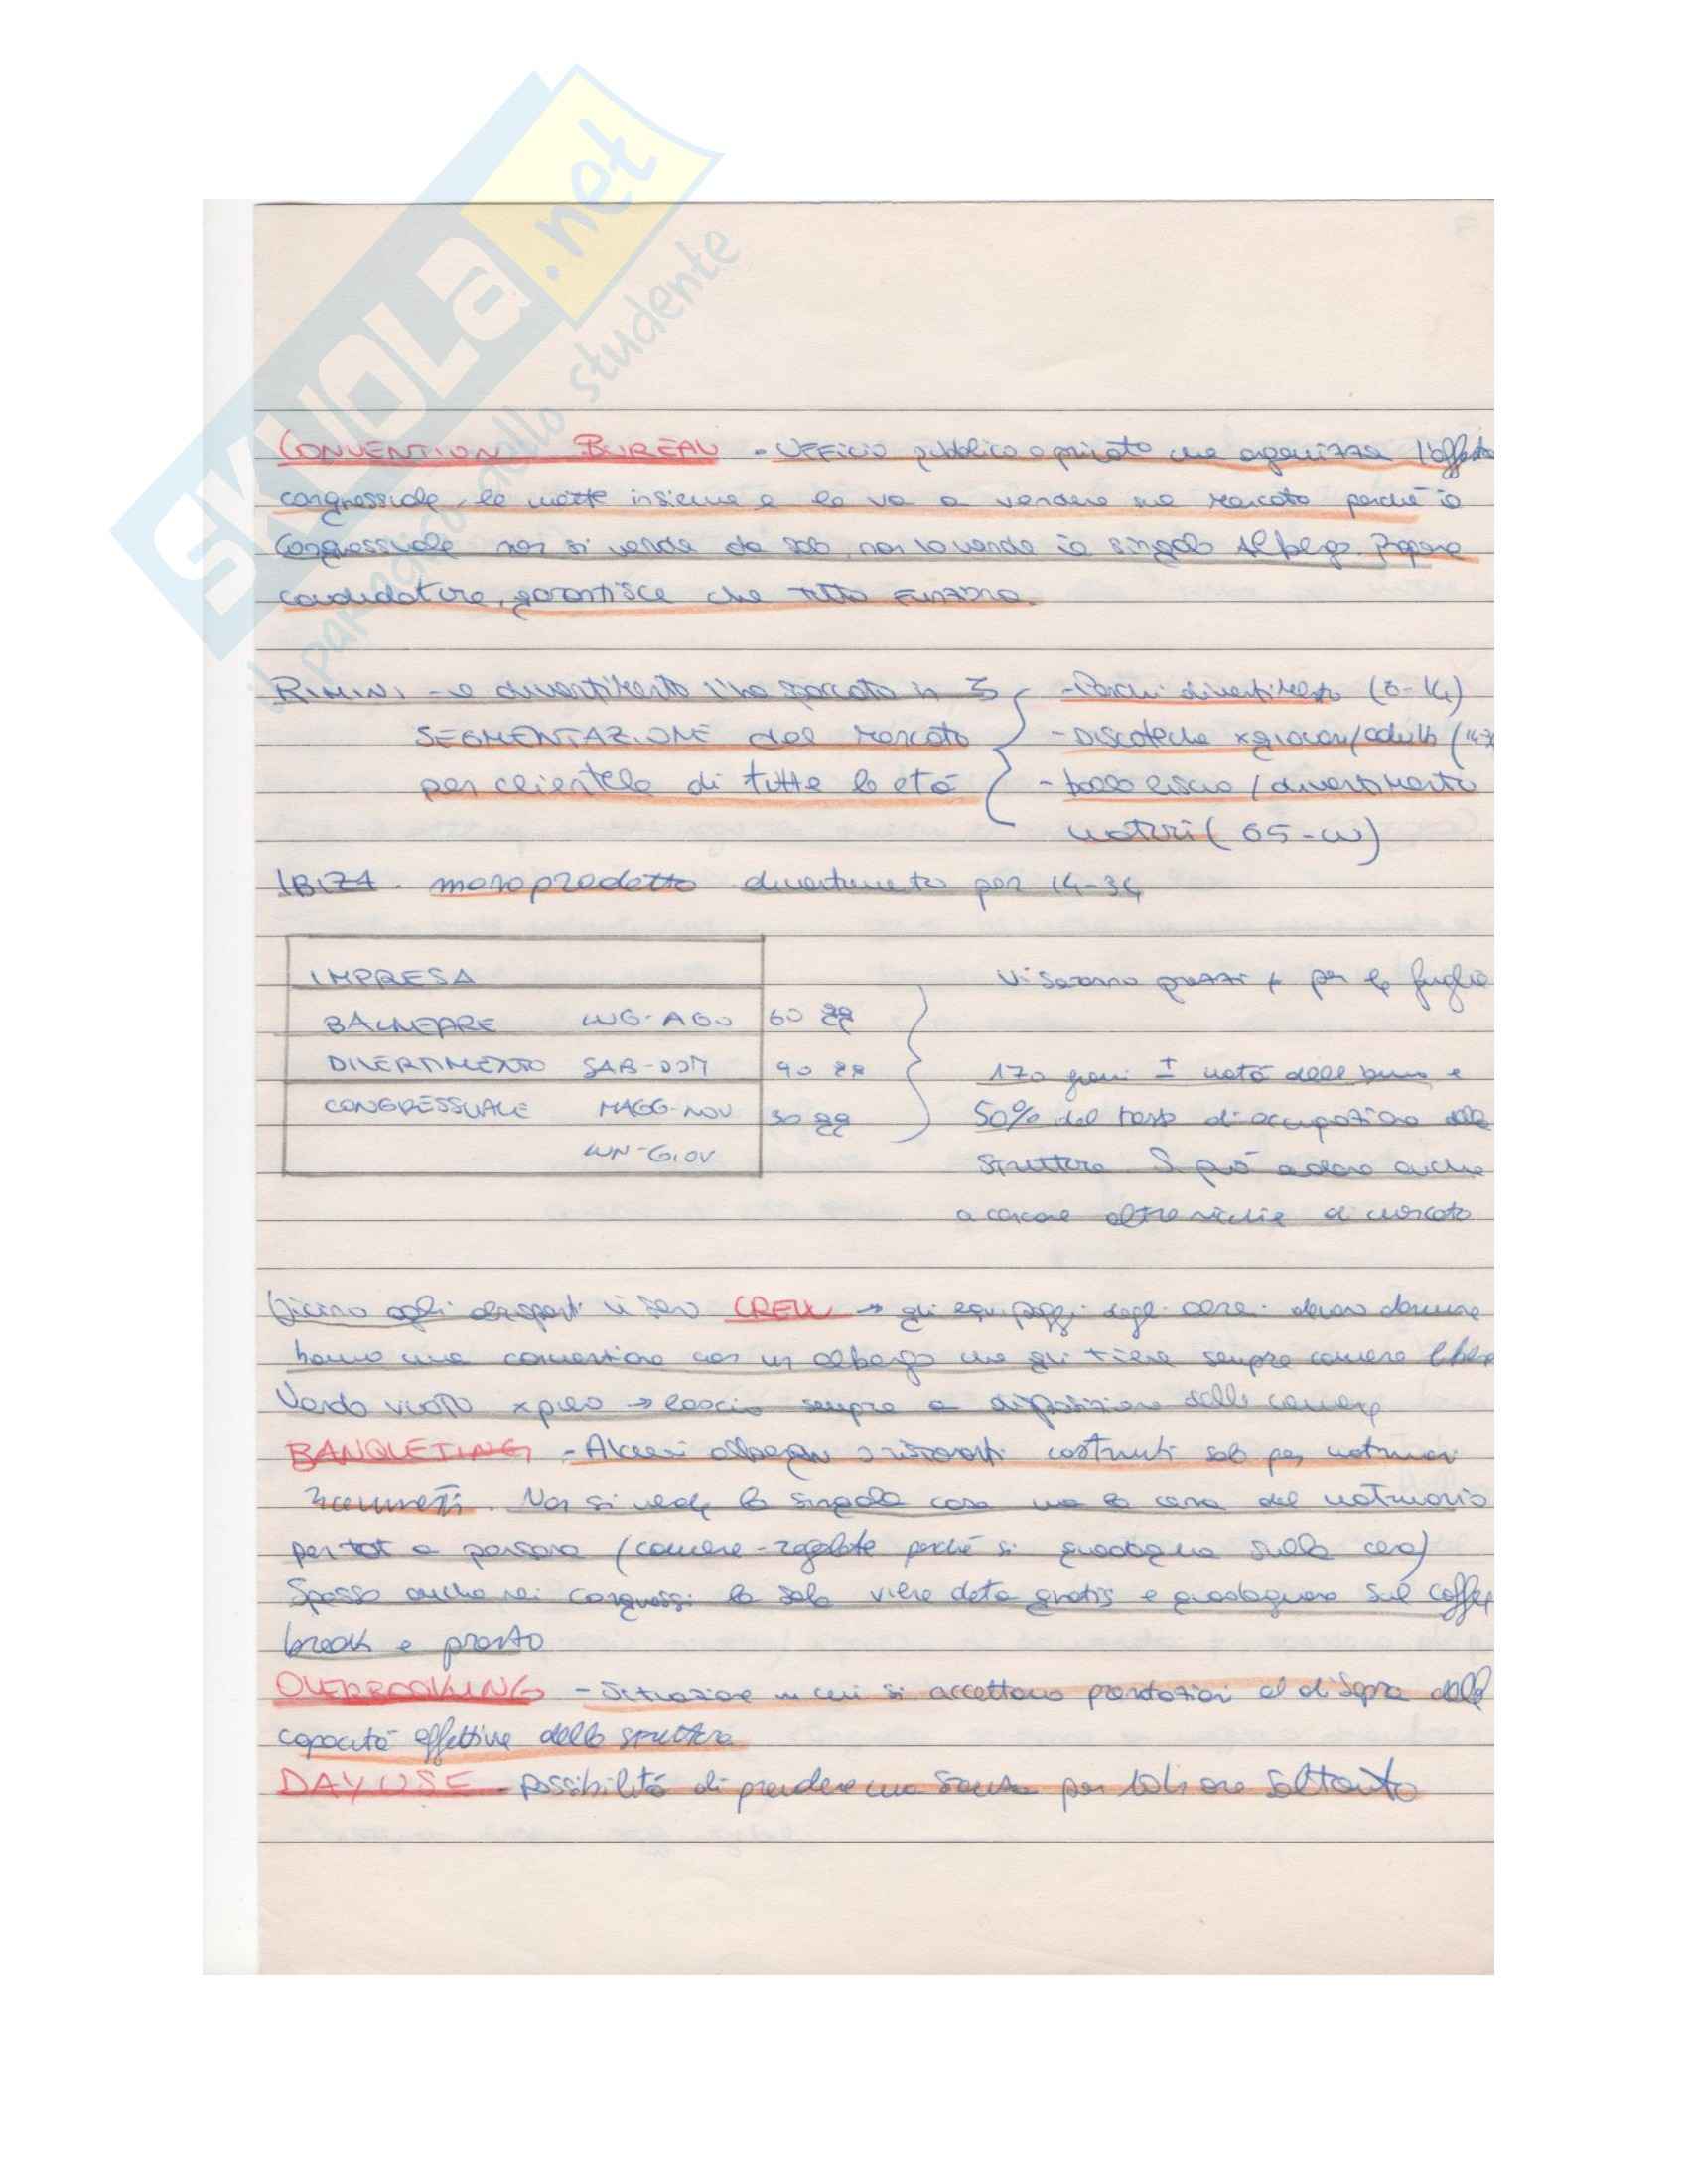 SKUOLA.net
il paradiso dello studente
CONVENTION BUREAU - Ufficio pubblico o privato che organizza l'offerta
congressuale, la mette insieme e la va a vendere sul mercato perché il
congressuale non si vende da solo, non lo vende il singolo albergo. Propone
candidature, garantisce che tutto funziona.
RIMINI - il divertimento l'ha spaccato in 3
- Parchi divertimento (6-14)
SEGMENTAZIONE del mercato
- Discoteche x giovani/adulti (14-3
per clientela di tutte le età
- ballo liscio / divertimento
maturi (65-ω)
IBIZA. monoprodotto divertimento per 14-34
IMPRESA
Vi saranno prezzi ≠ per le
BALNEARE LUG-AGO 60 gg
DIVERTIMENTO SAB-DOM 90 gg
170 giorni ± metà dell'anno e
CONGRESSUALE MAGG-NOV 30 gg
50% del tasso di occupazione della
LUN-GIOV
struttura. Si può andare anche
a cercare altre nicchie di mercato
Vicino agli aeroporti vi sono CREW → gli equipaggi degli aerei devono dormire
hanno una convenzione con un albergo che gli tiene sempre camere libere
Vendo vuoto x pieno → lascio sempre a disposizione delle camere
BANQUETING - Alcuni alberghi o ristoranti costruiti solo per matrimoni
ricevimenti. Non si vende la singola cosa ma la cena del matrimonio
per tot a persona (camere - regalate perché si guadagna sulla cena)
Spesso anche nei congressi la sala viene data gratis e guadagnano sul coffee
break e pranzo
OVERBOOKING - Situazione in cui si accettano prenotazioni al di sopra della
capacità effettiva della struttura
DAY USE - Possibilità di prendere una stanza per tot ore soltanto